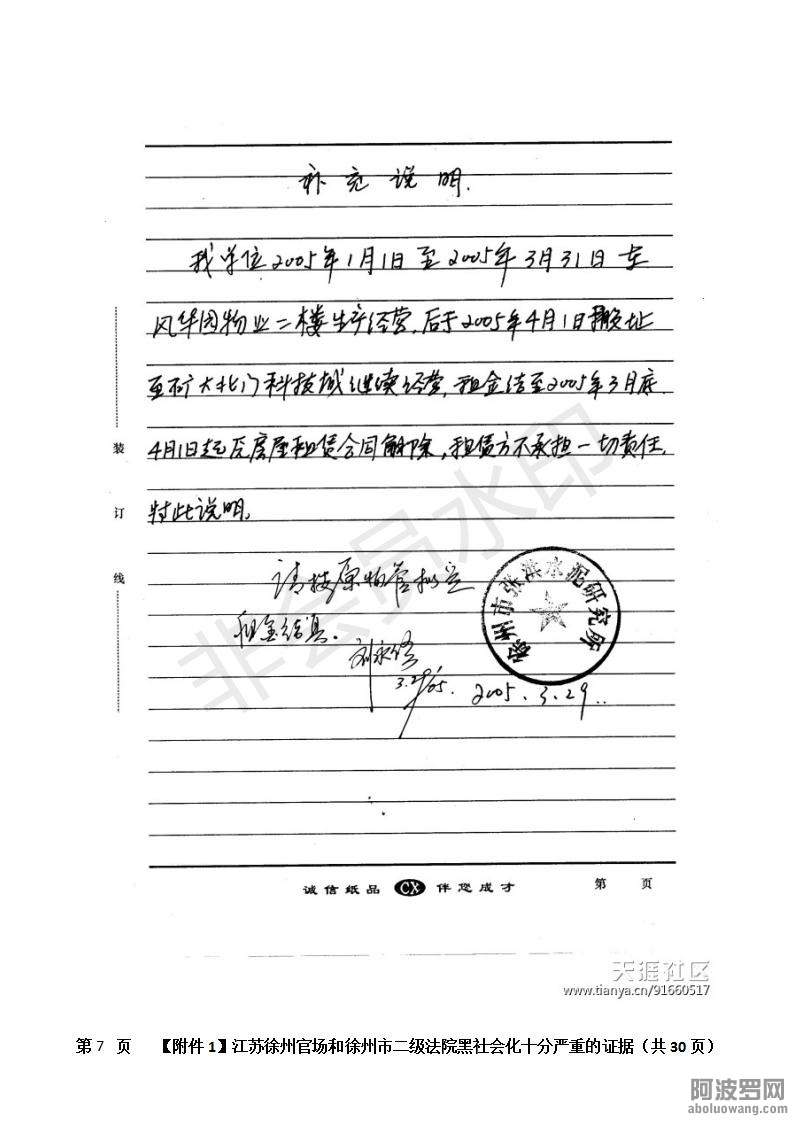 补充说明.
我单位2005年1月1日至2005年3月31日在
风华园物业二楼生产经营,后于2005年4月1日搬址
至矿大北门科技城继续经营,租金结至2005年3月底.
4月1日起房屋租赁合同解除,租赁方不承担一切责任.
特此说明.
请按原物管拟定
租金结算.
刘永修
3.29/05.
徐州市张洪水泥研究所
2005.3.29..
装
订
线
非会员水印
诚信纸品 CX 伴您成才 第 页
天涯社区
www.tianya.cn/91660517
第 7 页 【附件 1】江苏徐州官场和徐州市二级法院黑社会化十分严重的证据（共 30 页）
阿波罗网
aboluowang.com